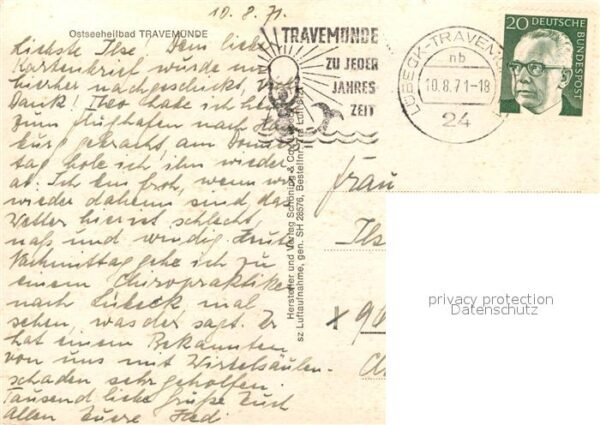 10.8.71.
Ostseeheilbad TRAVEMÜNDE
Liebste Ilse! Dein lieber
Kartenbrief wurde mir
hierher nachgeschickt, Vielen
Dank! habe ich heute
zum Flughafen nach
gebracht, am
tag hole ich ihn wieder
ab. Ich bin froh, wenn wir
wieder daheim sind, das
Wetter hier ist schlecht,
naß und windig. Heute
Nachmittag gehe ich zu
einem Chiropraktiker
nach Lübeck mal
sehen, was der sagt. Er
hat einem Bekannten
von uns mit Wirbelsäulen-
schaden sehr geholfen.
Tausend liebe Grüße Euch
Allen Euere
TRAVEMÜNDE
ZU JEDER
JAHRES
ZEIT
LÜBECK-TRAVEM
nb
10.8.71-18
24
20 DEUTSCHE
BUNDESPOST
Hersteller und Verlag Schöning & Co
sz Luftaufnahme, gen. SH 28576, Bestellnr.
Frau
Ilse
privacy protection
Datenschutz